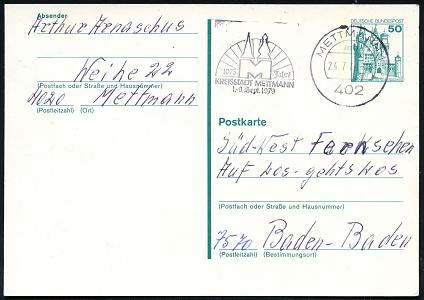 Absender
Arthur Arnaschus
Weihe 22
(Postfach oder Straße und Hausnummer)
4020 Mettmann
(Postleitzahl) (Ort)
1079 Jahre
KREISSTADT METTMANN
1.-9. Sept. 1979
METTMANN
24. 7.
402
DEUTSCHE BUNDESPOST
50
Postkarte
Süd-West Fernsehen
Auf los-gehts los
(Postfach oder Straße und Hausnummer)
7570 Baden-Baden
(Postleitzahl) (Bestimmungsort)